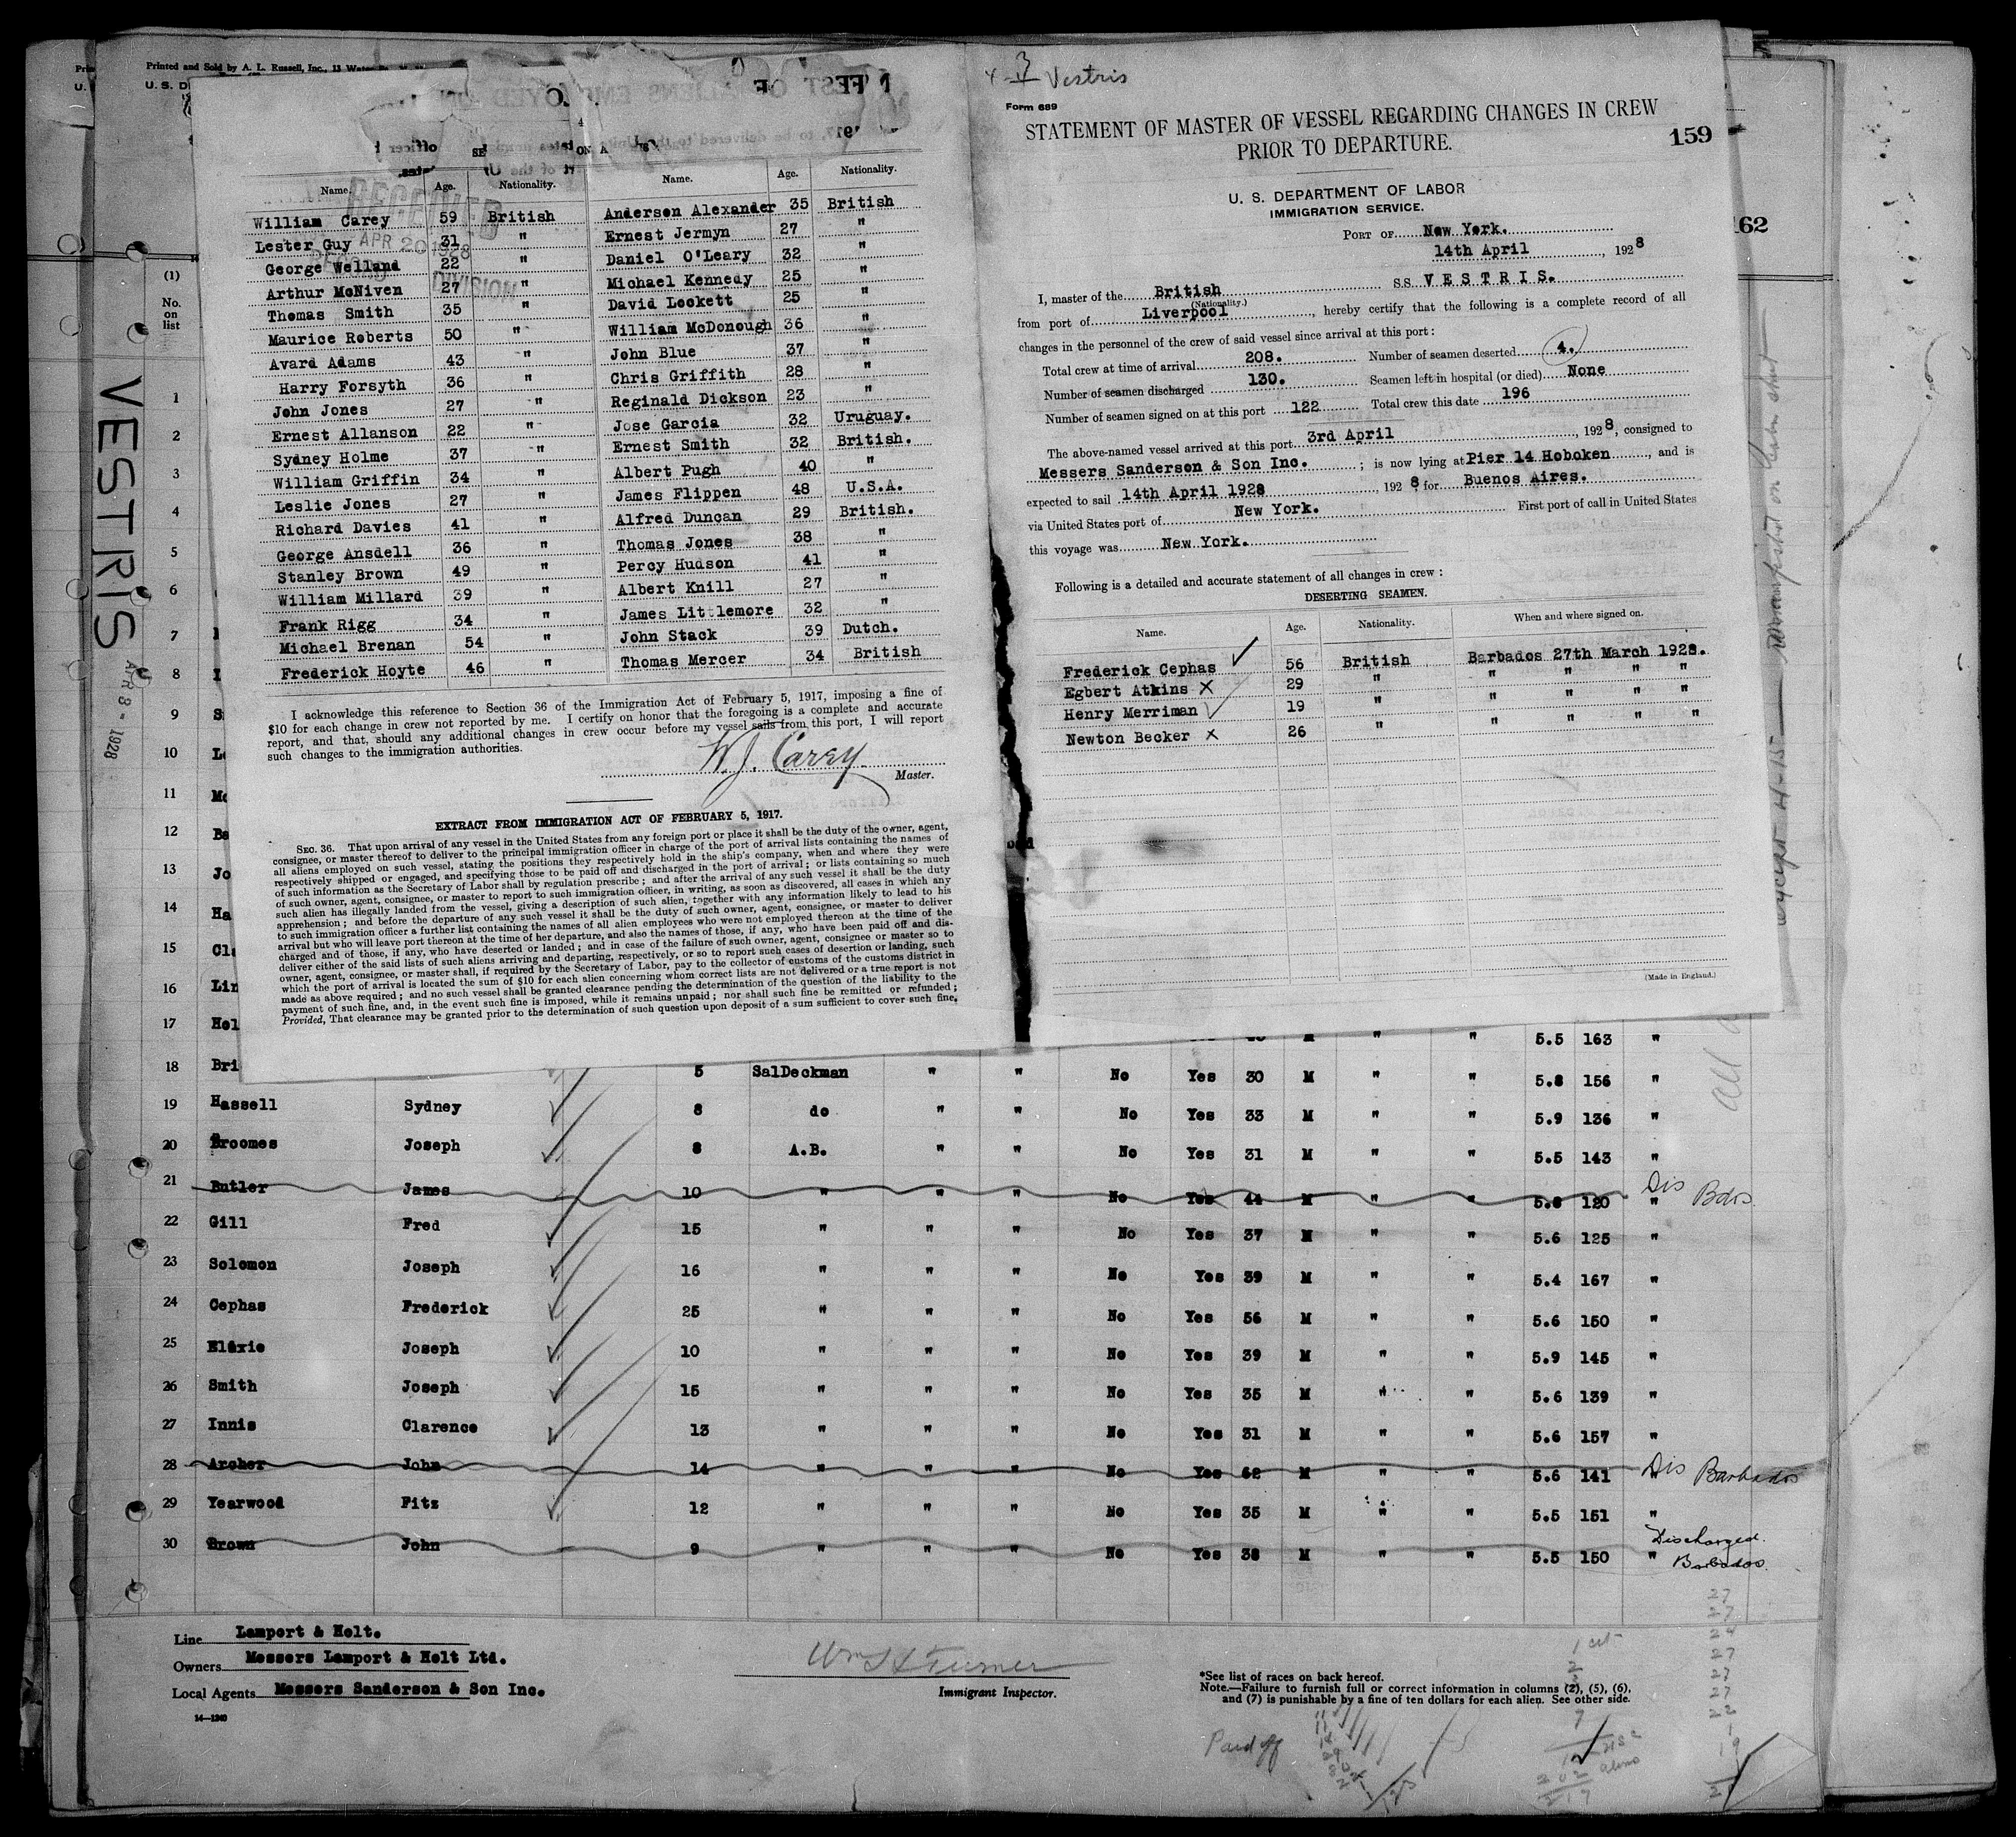 Printed and Sold by A. L. Russell, Inc., 13
U. S. D
VESTRIS
APR 8 - 1928
RECEIVED
APR 20 1928
RECORD DIVISION
Name. Age. Nationality. Name. Age. Nationality.
William Carey 59 British Anderson Alexander 35 British
Lester Guy 31 " Ernest Jermyn 27 "
George Welland 22 " Daniel O'Leary 32 "
Arthur McNiven 27 " Michael Kennedy 25 "
Thomas Smith 35 " David Lockett 25 "
Maurice Roberts 50 " William McDonough 36 "
Avard Adams 43 " John Blue 37 "
Harry Forsyth 36 " Chris Griffith 28 "
John Jones 27 " Reginald Dickson 23 "
Ernest Allanson 22 " Jose Garcia 32 Uruguay.
Sydney Holme 37 " Ernest Smith 32 British.
William Griffin 34 " Albert Pugh 40 "
Leslie Jones 27 " James Flippen 48 U.S.A.
Richard Davies 41 " Alfred Duncan 29 British.
George Ansdell 36 " Thomas Jones 38 "
Stanley Brown 49 " Percy Hudson 41 "
William Millard 39 " Albert Knill 27 "
Frank Rigg 34 " James Littlemore 32 "
Michael Brenan 54 " John Stack 39 Dutch.
Frederick Hoyte 46 " Thomas Mercer 34 British
I acknowledge this reference to Section 36 of the Immigration Act of February 5, 1917, imposing a fine of
$10 for each change in crew not reported by me. I certify on honor that the foregoing is a complete and accurate
report, and that, should any additional changes in crew occur before my vessel sails from this port, I will report
such changes to the immigration authorities.
W. J. Carey
Master.
EXTRACT FROM IMMIGRATION ACT OF FEBRUARY 5, 1917.
SEC. 36. That upon arrival of any vessel in the United States from any foreign port or place it shall be the duty of the owner, agent,
consignee, or master thereof to deliver to the principal immigration officer in charge of the port of arrival lists containing the names of
all aliens employed on such vessel, stating the positions they respectively hold in the ship's company, when and where they were
respectively shipped or engaged, and specifying those to be paid off and discharged in the port of arrival; or lists containing so much
of such information as the Secretary of Labor shall by regulation prescribe; and after the arrival of any such vessel it shall be the duty
of such owner, agent, consignee, or master to report to such immigration officer, in writing, as soon as discovered, all cases in which any
such alien has illegally landed from the vessel, giving a description of such alien, together with any information likely to lead to his
apprehension; and before the departure of any such vessel it shall be the duty of such owner, agent, consignee, or master to deliver
to such immigration officer a further list containing the names of all alien employees who were not employed thereon at the time of the
arrival but who will leave port thereon at the time of her departure, and also the names of those, if any, who have been paid off and dis-
charged and of those, if any, who have deserted or landed; and in case of the failure of such owner, agent, consignee or master so to
deliver either of the said lists of such aliens arriving and departing, respectively, or so to report such cases of desertion or landing, such
owner, agent, consignee, or master shall, if required by the Secretary of Labor, pay to the collector of customs of the customs district in
which the port of arrival is located the sum of $10 for each alien concerning whom correct lists are not delivered or a true report is not
made as above required; and no such vessel shall be granted clearance pending the determination of the question of the liability to the
payment of such fine, and, in the event such fine is imposed, while it remains unpaid; nor shall such fine be remitted or refunded;
Provided, That clearance may be granted prior to the determination of such question upon deposit of a sum sufficient to cover such fine.
4-3 Vestris
Form 689
STATEMENT OF MASTER OF VESSEL REGARDING CHANGES IN CREW
PRIOR TO DEPARTURE.
159
U. S. DEPARTMENT OF LABOR
IMMIGRATION SERVICE.
PORT OF New York.
14th April, 1928
I, master of the British SS VESTRIS.
(Nationality.)
from port of Liverpool, hereby certify that the following is a complete record of all
changes in the personnel of the crew of said vessel since arrival at this port:
Total crew at time of arrival 208. Number of seamen deserted 4.
Number of seamen discharged 130. Seamen left in hospital (or died) None
Number of seamen signed on at this port 122 Total crew this date 196
The above-named vessel arrived at this port 3rd April, 1928, consigned to
Messers Sanderson & Son Inc. ; is now lying at Pier 14 Hoboken, and is
expected to sail 14th April 1928, 1928 for Buenos Aires.
via United States port of New York. First port of call in United States
this voyage was New York.
Following is a detailed and accurate statement of all changes in crew:
DESERTING SEAMEN.
Name. Age. Nationality. When and where signed on.
Frederick Cephas 56 British Barbados 27th March 1928.
Egbert Atkins X 29 " " " " "
Henry Merriman 19 " " " " "
Newton Becker X 26 " " " " "
(Made in England.)
162
(1)
No.
on
list
1
2
3
4
5
6
7
8
9
10
11
12
13
14
15
16
17 Hol 5.5 163 "
18 Bri 5 SalDeckman " " No Yes 30 M " " 5.8 156 "
19 Hassell Sydney 8 do " " No Yes 33 M " " 5.9 136 "
20 Broomes Joseph 8 A.B. " " No Yes 31 M " " 5.5 143 "
21 Butler James 10 " " " No Yes 44 M " " 5.8 120 " Dis Bdos.
22 Gill Fred 15 " " " No Yes 37 M " " 5.6 125 "
23 Solomon Joseph 16 " " " No Yes 39 M " " 5.4 167 "
24 Cephas Frederick 25 " " " No Yes 56 M " " 5.6 150 "
25 Joseph 10 " " " No Yes 39 M " " 5.9 145 "
26 Smith Joseph 15 " " " No Yes 35 M " " 5.6 139 "
27 Innis Clarence 13 " " " No Yes 31 M " " 5.6 157 "
28 Archer John 14 " " " No Yes 62 M " " 5.6 141 Dis Barbados
29 Yearwood Fitz 12 " " " No Yes 35 M " " 5.5 151 "
30 Brown John 9 " " " No Yes 38 M " " 5.5 150 " Discharged. Barbados.
Line Lamport & Holt.
Owners Messers Lamport & Holt Ltd.
Local Agents Messers Sanderson & Son Inc.
14—1240
Wm H Turner
Immigrant Inspector.
*See list of races on back hereof.
Note.—Failure to furnish full or correct information in columns (2), (5), (6),
and (7) is punishable by a fine of ten dollars for each alien. See other side.
Paid off